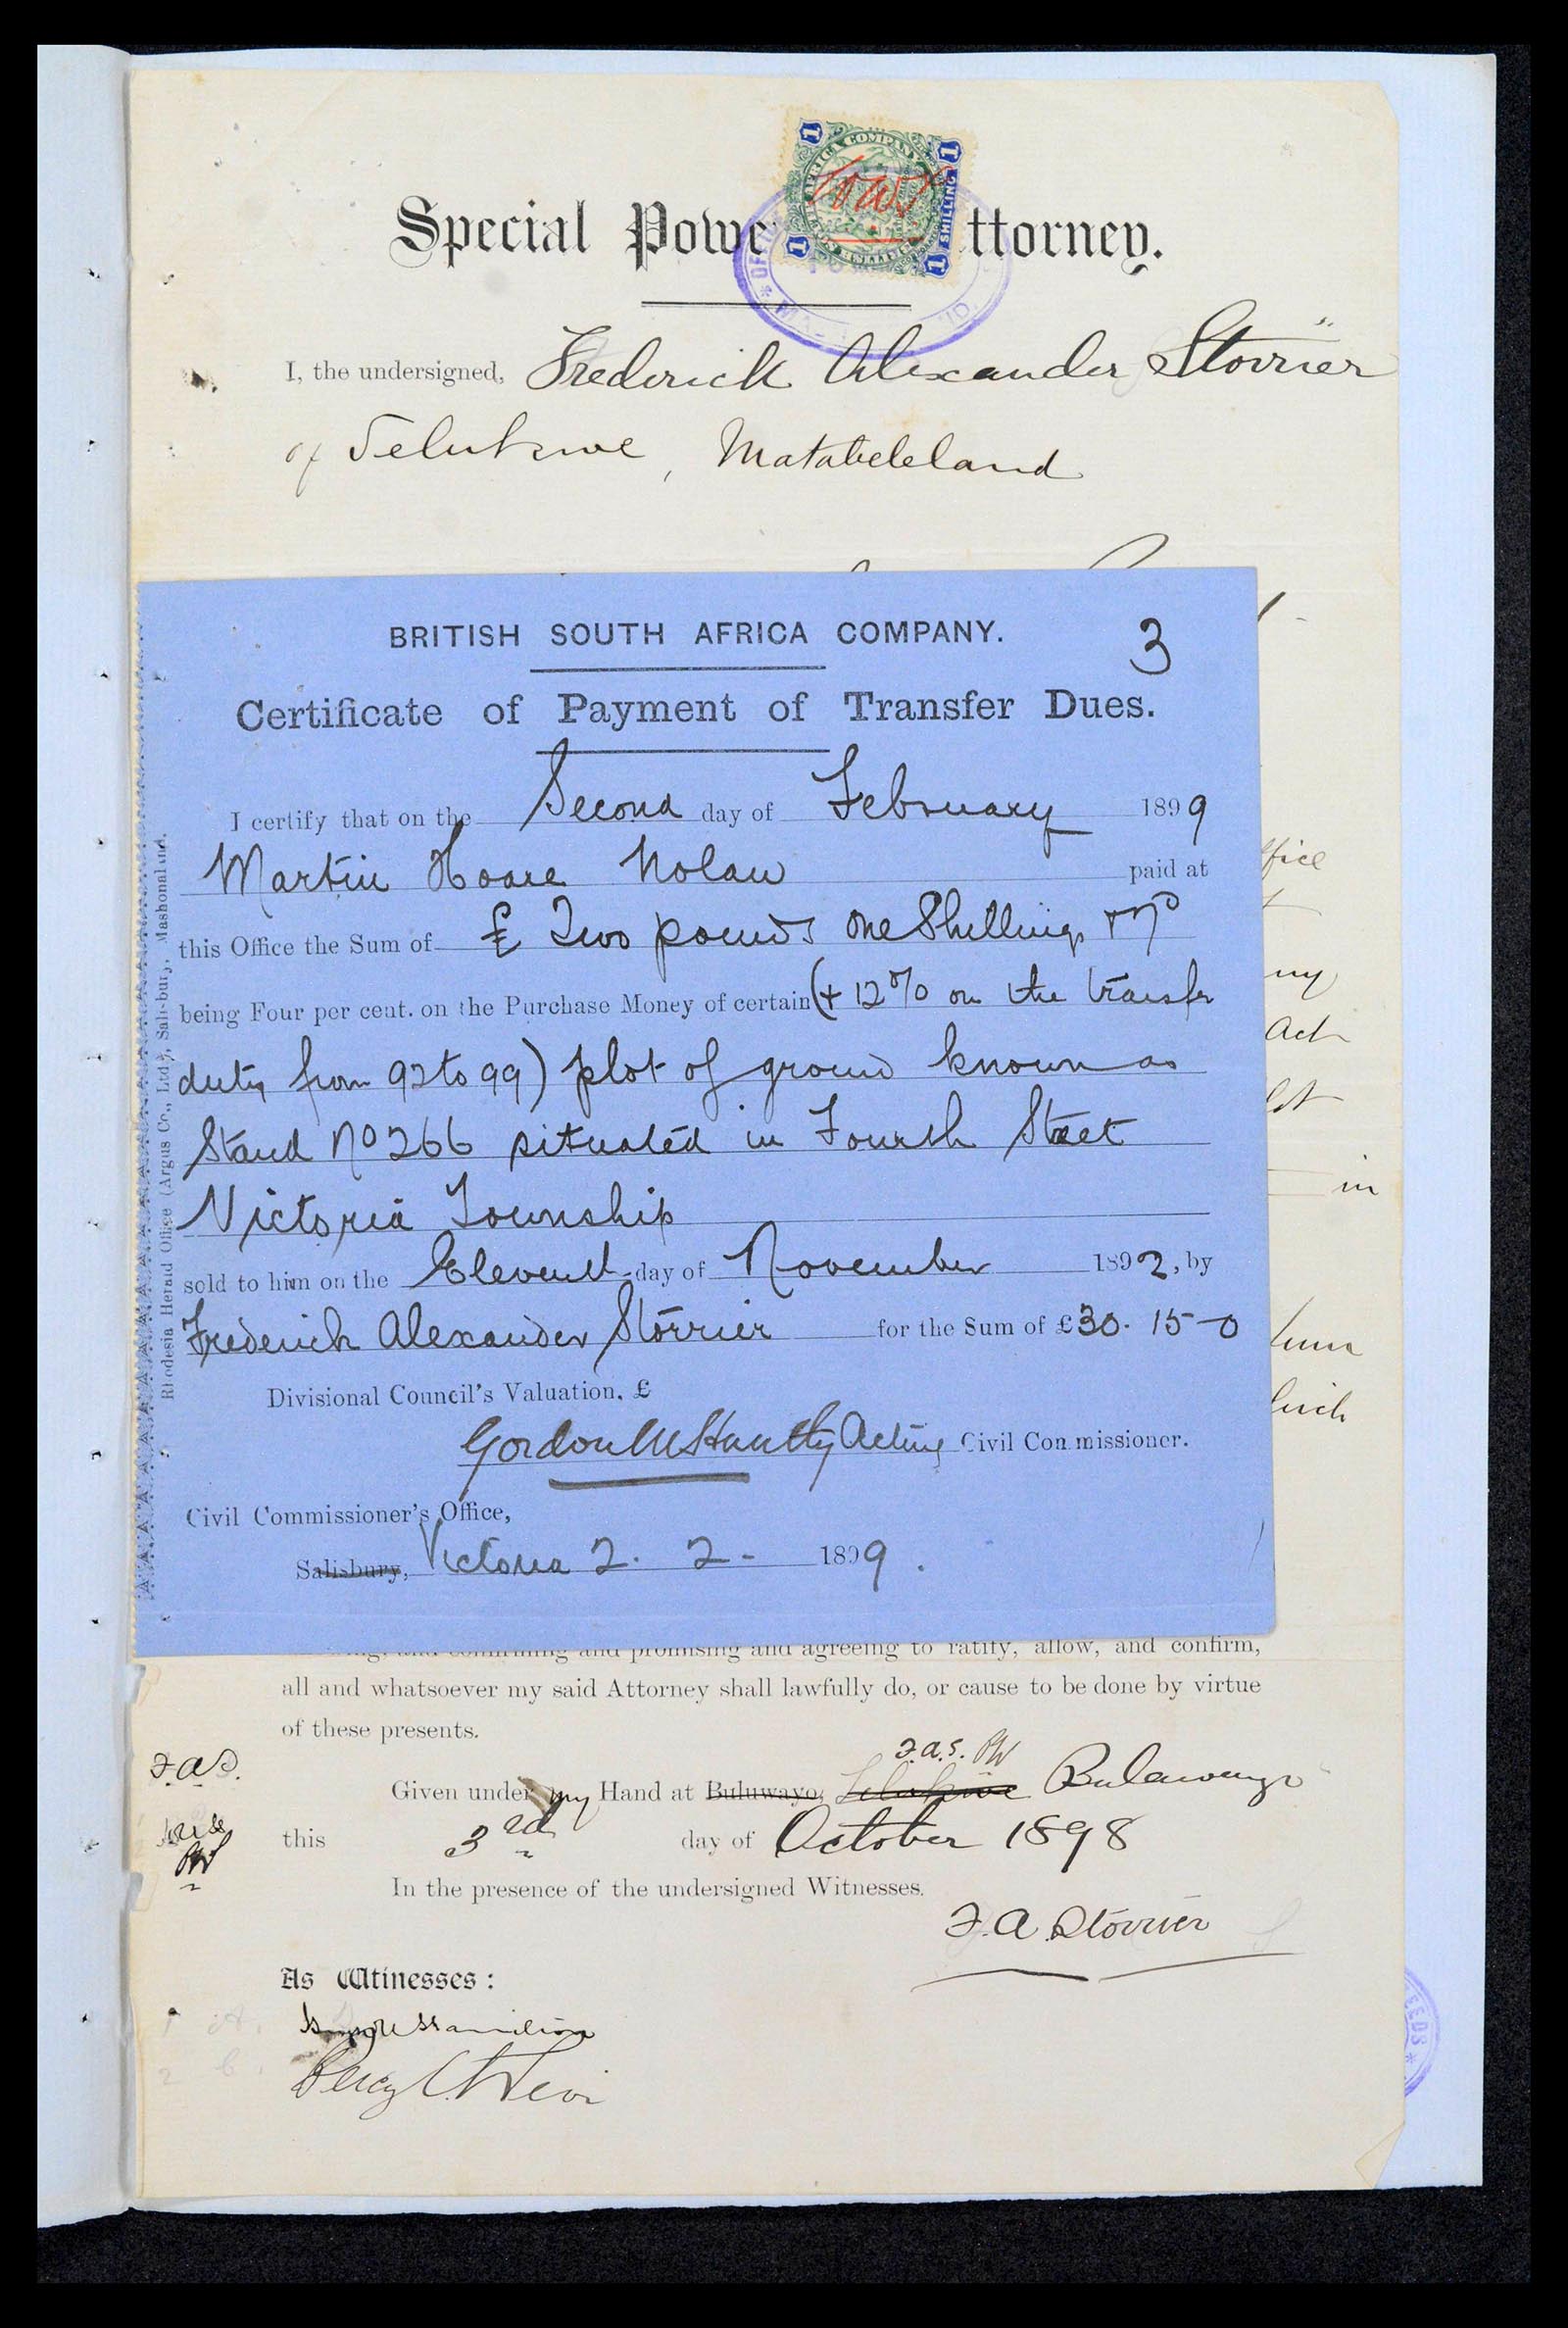 Special Powe ttorney.
AFRICA COMPANY
1 1 1 1
SHILLING
I, the undersigned, Frederick Alexander Störrier
of Selukwe, Matabeleland
BRITISH SOUTH AFRICA COMPANY. 3
Certificate of Payment of Transfer Dues.
I certify that on the Second day of February 1899
Martin Hoare Nolan paid at
this Office the Sum of £ Two pounds one Shillings
being Four per cent. on the Purchase Money of certain (+ 12% on the transfer
duty from 92 to 99) plot of ground known as
Stand No 266 situated in Fourth Street
Victoria Township
sold to him on the Eleventh day of November 1892, by
Frederick Alexander Störrier for the Sum of £30. 15-0
Divisional Council's Valuation, £
Acting Civil Commissioner.
Civil Commissioner's Office,
Salisbury, Victoria 2. 2- 1899.
Rhodesia Herald Office (Argus Co., Ltd.), Salisbury, Mashonaland.
ffice
my
Act
in
and promising and agreeing to ratify, allow, and confirm,
all and whatsoever my said Attorney shall lawfully do, or cause to be done by virtue
of these presents.
F.A.S.
F.A.S. PW
Given under my Hand at Buluwayo, Selukwe Bulawayo
this 3rd day of October 1898
In the presence of the undersigned Witnesses.
F.A. Störrier
As Witnesses:
EEDS